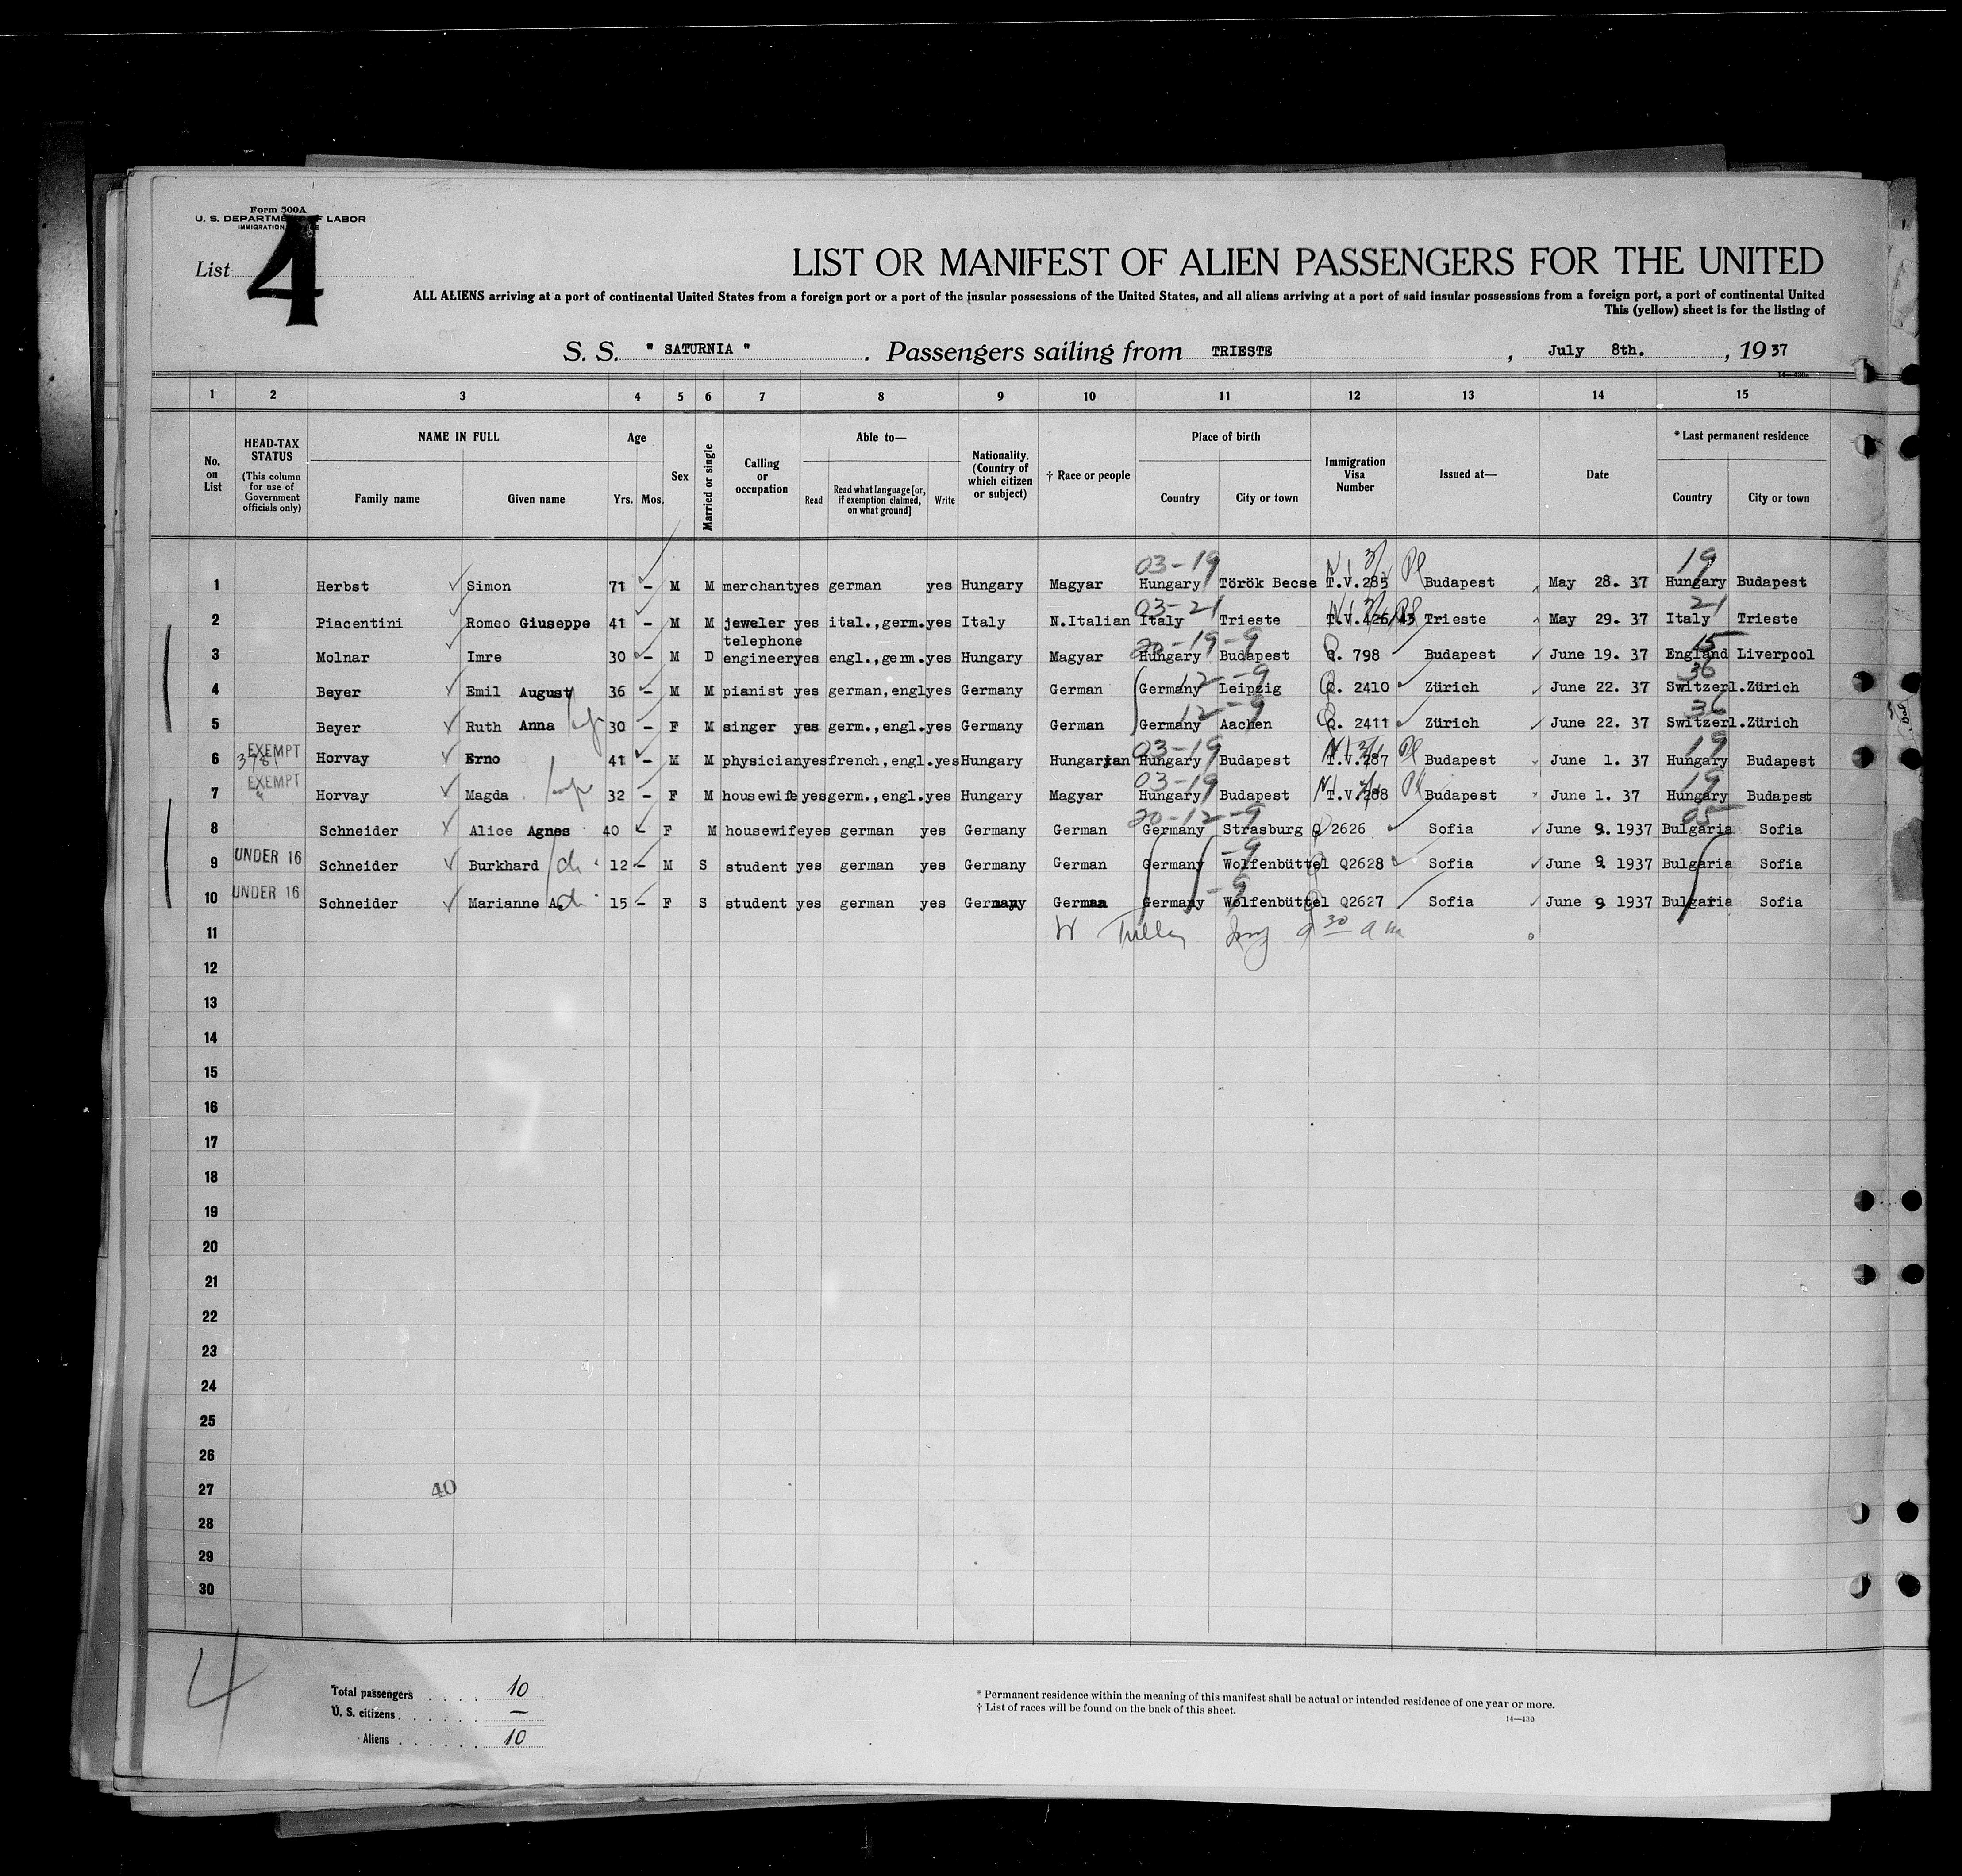 Form 500A
U. S. DEPARTMENT OF LABOR
IMMIGRATION
List 4
LIST OR MANIFEST OF ALIEN PASSENGERS FOR THE UNITED
ALL ALIENS arriving at a port of continental United States from a foreign port or a port of the insular possessions of the United States, and all aliens arriving at a port of said insular possessions from a foreign port, a port of continental United
This (yellow) sheet is for the listing of
S. S. " SATURNIA " . Passengers sailing from TRIESTE , July 8th. , 19 37
1 2 3 4 5 6 7 8 9 10 11 12 13 14 15
No. on List
HEAD-TAX STATUS (This column for use of Government officials only)
NAME IN FULL Family name Given name
Age Yrs. Mos.
Sex
Married or single
Calling or occupation
Able to— Read Read what language [or, if exemption claimed, on what ground] Write
Nationality. (Country of which citizen or subject)
† Race or people
Place of birth Country City or town
Immigration Visa Number
Issued at—
Date
* Last permanent residence Country City or town
03-19 19
1 Herbst Simon 71 - M M merchant yes german yes Hungary Magyar Hungary Török Becse T.V.285 Budapest May 28. 37 Hungary Budapest
03-21 21
2 Piacentini Romeo Giuseppe 41 - M M jeweler yes ital.,germ. yes Italy N.Italian Italy Trieste T.V.426/43 Trieste May 29. 37 Italy Trieste
20-19-9 15
3 Molnar Imre 30 - M D telephone engineer yes engl.,germ. yes Hungary Magyar Hungary Budapest Q. 798 Budapest June 19. 37 England Liverpool
12-9 36
4 Beyer Emil August 36 - M M pianist yes german,engl yes Germany German Germany Leipzig Q. 2410 Zürich June 22. 37 Switzerl. Zürich
12-9 36
5 Beyer Ruth Anna 30 - F M singer yes germ.,engl. yes Germany German Germany Aachen Q. 2411 Zürich June 22. 37 Switzerl. Zürich
EXEMPT 03-19 19
6 Horvay Erno 41 - M M physician yes french,engl. yes Hungary Hungarian Hungary Budapest T.V.287 Budapest June 1. 37 Hungary Budapest
EXEMPT 03-19 19
7 Horvay Magda 32 - F M housewife yes germ.,engl. yes Hungary Magyar Hungary Budapest T.V.288 Budapest June 1. 37 Hungary Budapest
20-12-9 05
8 Schneider Alice Agnes 40 - F M housewife yes german yes Germany German Germany Strasburg Q 2626 Sofia June 9. 1937 Bulgaria Sofia
UNDER 16 -9
9 Schneider Burkhard ch 12 - M S student yes german yes Germany German Germany Wolfenbüttel Q2628 Sofia June 9. 1937 Bulgaria Sofia
UNDER 16 -9
10 Schneider Marianne A. ch 15 - F S student yes german yes Germany German Germany Wolfenbüttel Q2627 Sofia June 9 1937 Bulgaria Sofia
11 9 30 a m
12
13
14
15
16
17
18
19
20
21
22
23
24
25
26
27 40
28
29
30
4
Total passengers . . . . 10
U. S. citizens . . . . . . —
Aliens . . . . . . 10
* Permanent residence within the meaning of this manifest shall be actual or intended residence of one year or more.
† List of races will be found on the back of this sheet.
14—430